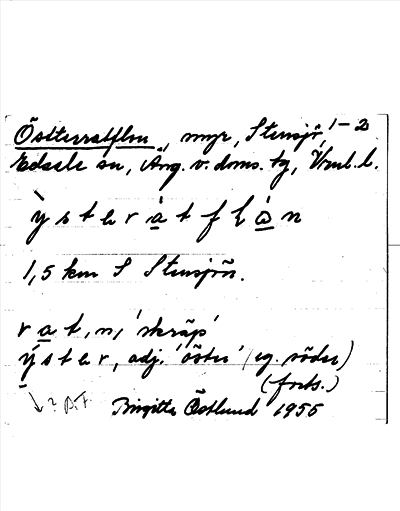 Österratflon, myr, Stensjö, 1-2
Edsele sn, Ång. v. doms. tg, Vnl. l.
ỳ s t e r à t f l ò n
1,5 km S Stensjön.
r a t, n, 'skräp'
ý s t e r, adj. 'öster' (eg. söder)
(forts.)
? B.F.
Birgitta Östlund 1955